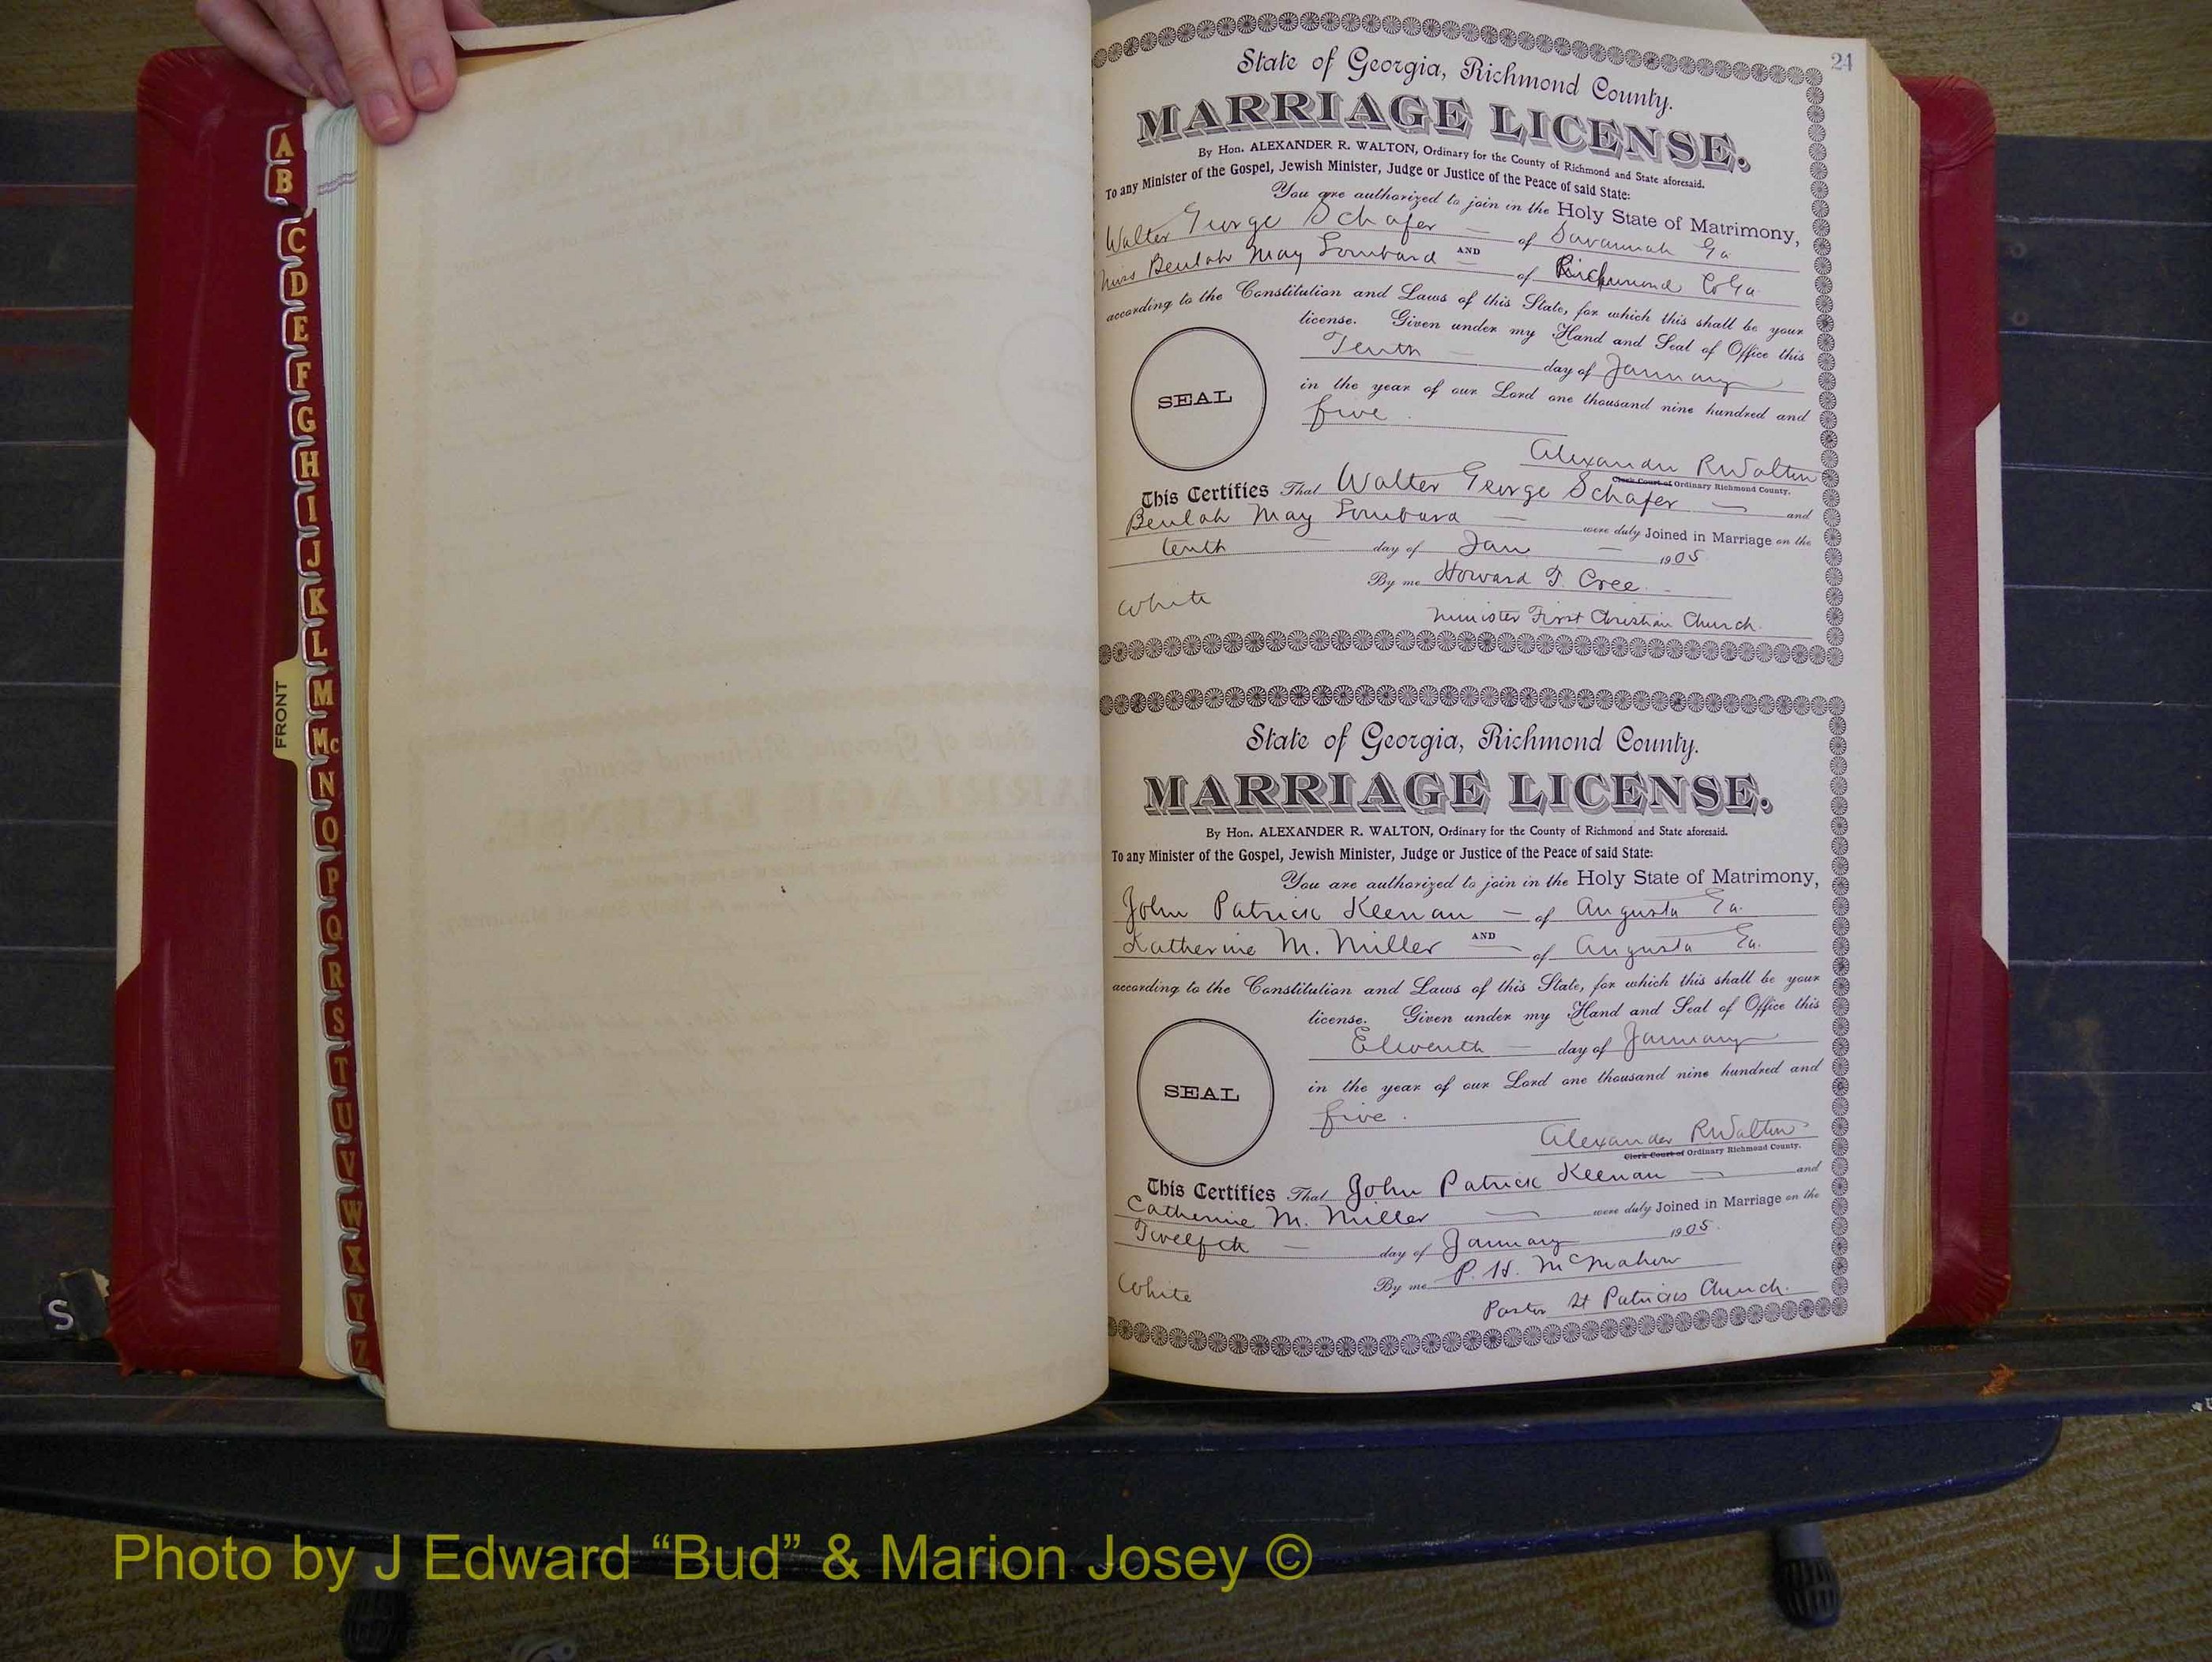 A
B
C
D
E
F
G
H
I
J
K
L
M
Mc
N
O
P
Q
R
S
T
U
V
W
X
Y
Z
FRONT
S
24
State of Georgia, Richmond County.
MARRIAGE LICENSE.
By Hon. ALEXANDER R. WALTON, Ordinary for the County of Richmond and State aforesaid.
To any Minister of the Gospel, Jewish Minister, Judge or Justice of the Peace of said State:
You are authorized to join in the Holy State of Matrimony,
Walter George Schafer — of Savannah Ga.
AND
Miss Beulah May Lombard — of Richmond Co Ga
according to the Constitution and Laws of this State, for which this shall be your
license. Given under my Hand and Seal of Office this
Tenth — day of January
SEAL
in the year of our Lord one thousand nine hundred and
five.
Alexander R Walton
Clerk Court of Ordinary Richmond County.
This Certifies That Walter George Schafer — and
Beulah May Lombard — were duly Joined in Marriage on the
tenth day of Jan — 1905
By me Howard T. Cree
White
Minister First Christian Church.
State of Georgia, Richmond County.
MARRIAGE LICENSE.
By Hon. ALEXANDER R. WALTON, Ordinary for the County of Richmond and State aforesaid.
To any Minister of the Gospel, Jewish Minister, Judge or Justice of the Peace of said State:
You are authorized to join in the Holy State of Matrimony,
John Patrick Keenan — of Augusta Ga.
AND
Katherine M. Miller — of Augusta Ga.
according to the Constitution and Laws of this State, for which this shall be your
license. Given under my Hand and Seal of Office this
Eleventh — day of January
SEAL
in the year of our Lord one thousand nine hundred and
five.
Alexander R Walton
Clerk Court of Ordinary Richmond County.
This Certifies That John Patrick Keenan — and
Catherine M. Miller — were duly Joined in Marriage on the
Twelfth — day of January 1905.
By me P. H. McMahon
White
Pastor St Patricks Church.
Photo by J Edward “Bud” & Marion Josey ©